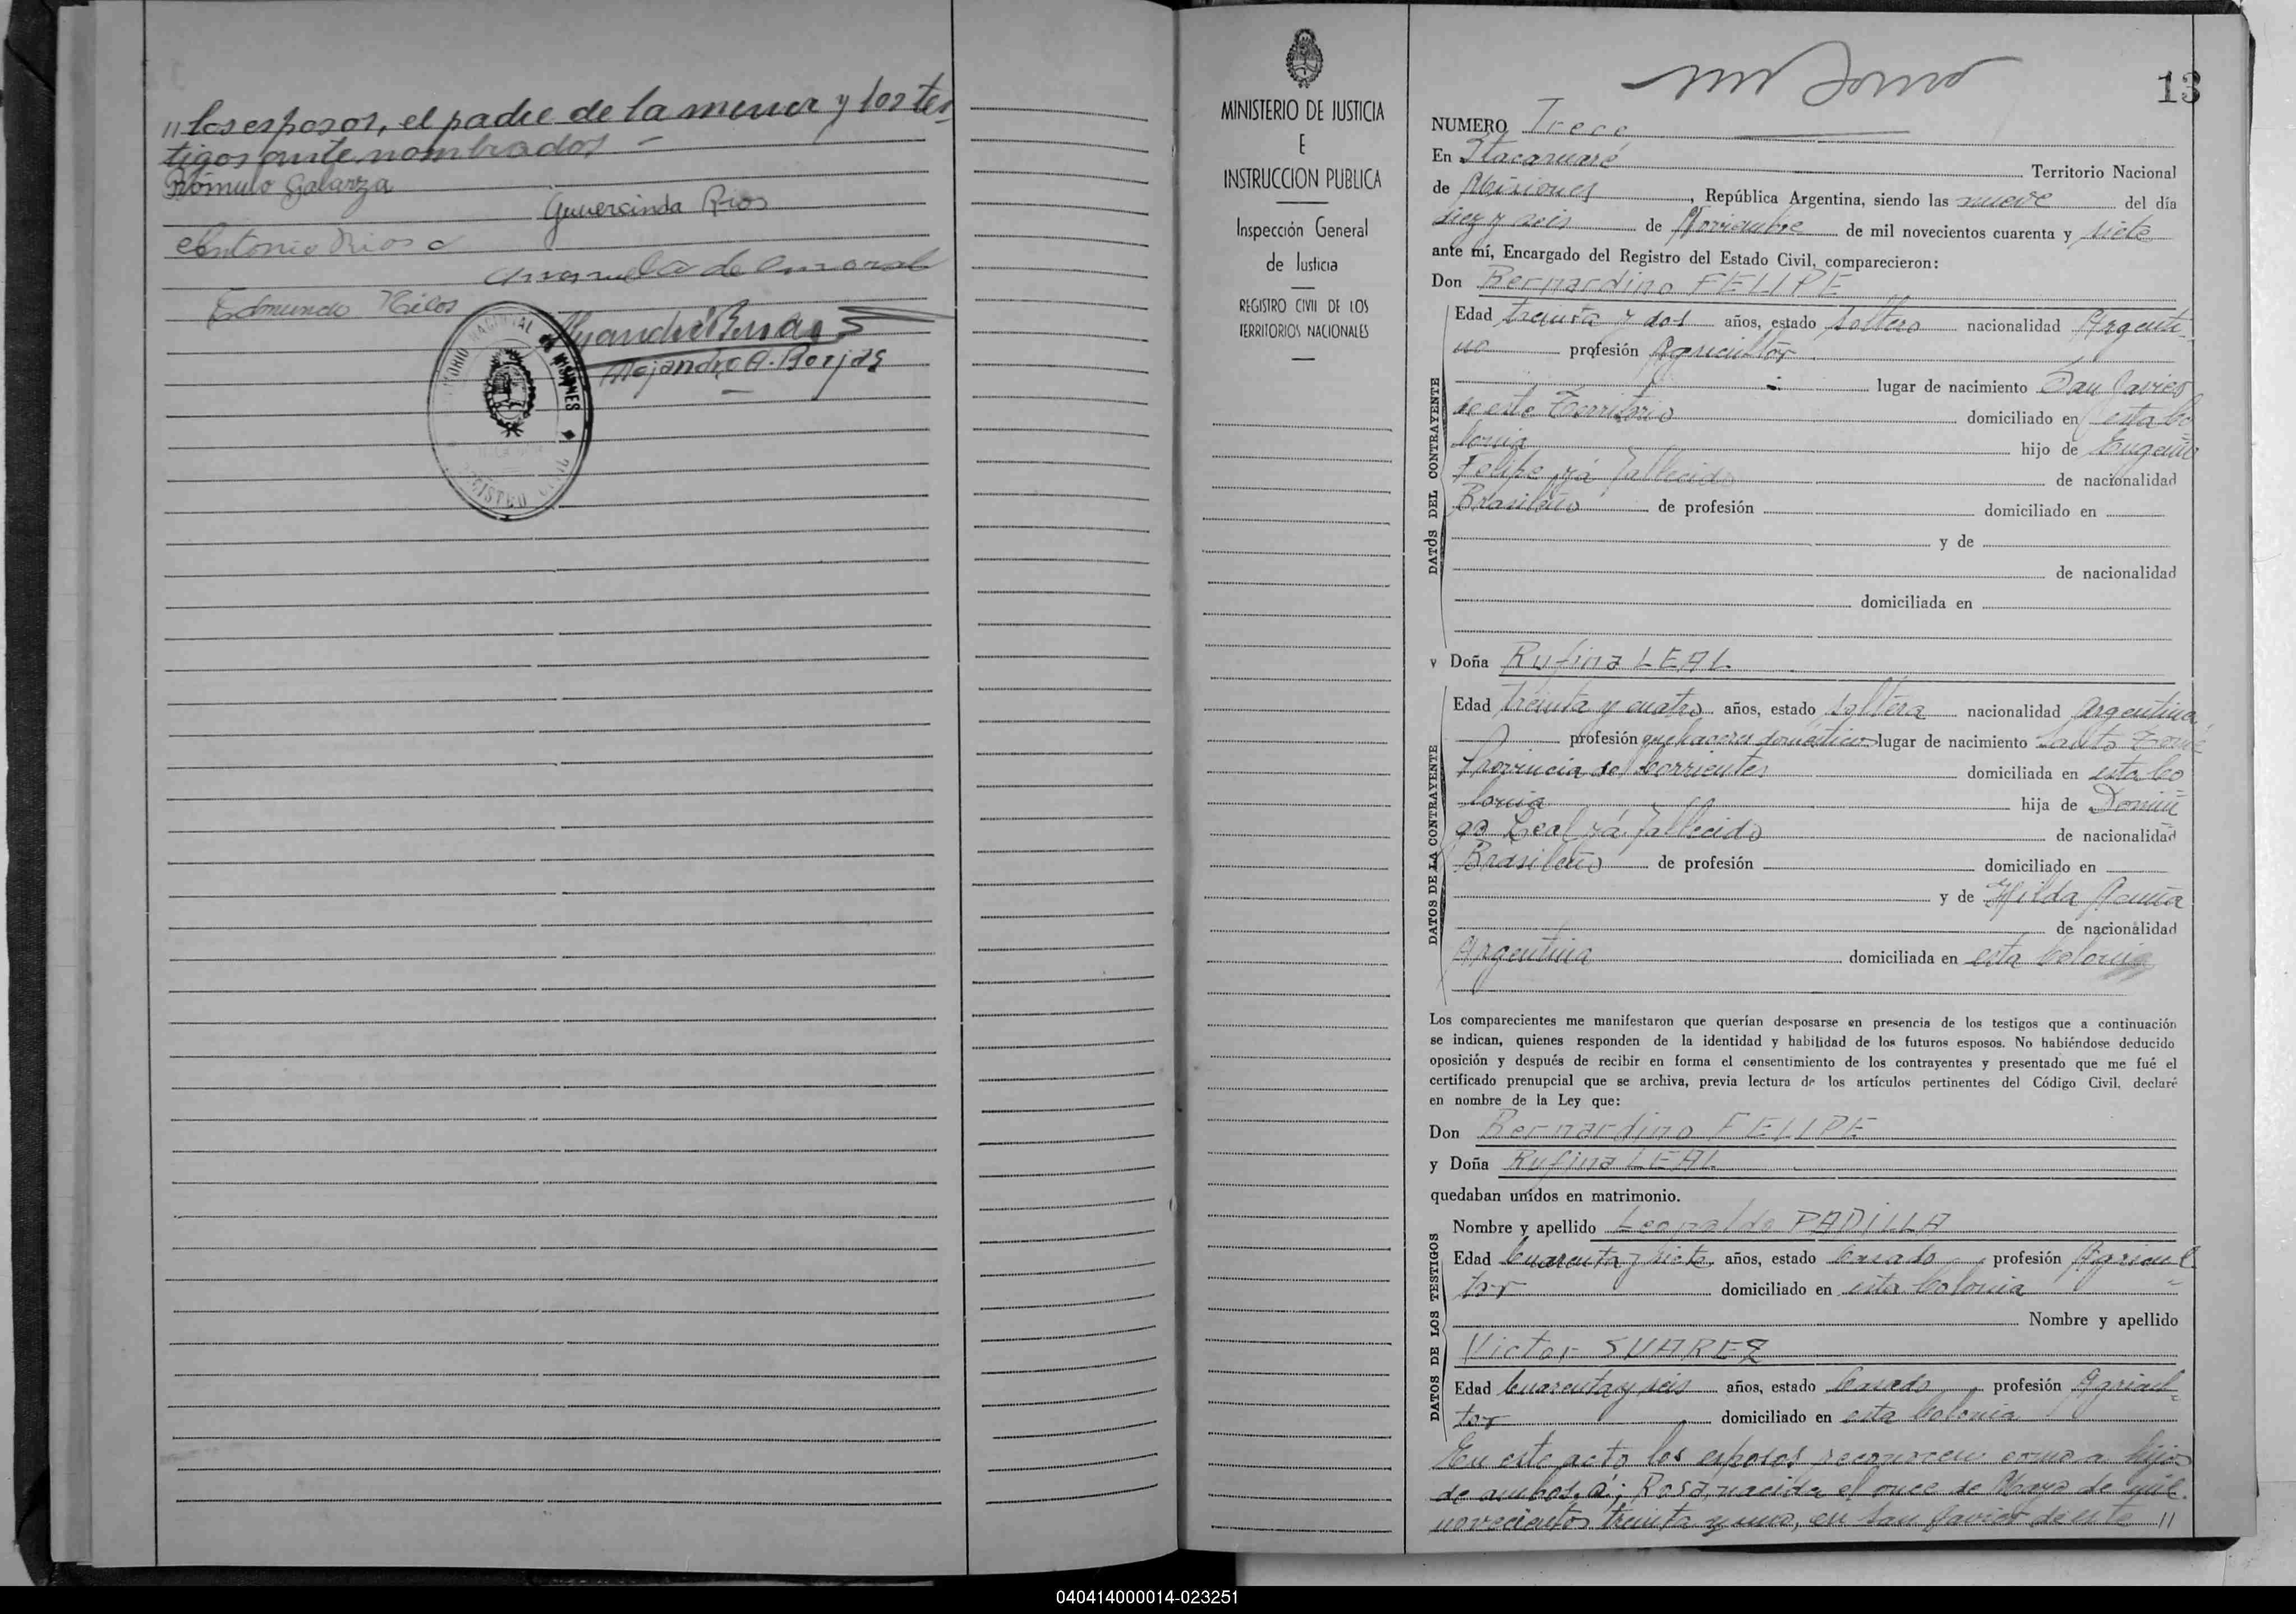 "los esposos, el padre de la menor y los tes
tigos ante nombrados —
Rómulo Galarza
Gumercinda Rios
Antonio Rios
Edmundo
Alejandro A. Borjas
TERRITORIO NACIONAL DE MISIONES
REGISTRO CIVIL
MINISTERIO DE JUSTICIA
E
INSTRUCCION PUBLICA
Inspección General
de Justicia
REGISTRO CIVIL DE LOS
TERRITORIOS NACIONALES
13
NUMERO Trece
En Itacaruaré Territorio Nacional
de Misiones, República Argentina, siendo las nueve del día
diez y seis de Noviembre de mil novecientos cuarenta y siete
ante mí, Encargado del Registro del Estado Civil, comparecieron:
Don Bernardino FELIPE
DATOS DEL CONTRAYENTE
Edad treinta y dos años, estado soltero nacionalidad Argenti-
no profesión Agricultor
lugar de nacimiento San Javier
de este Territorio domiciliado en esta Co
lonia hijo de Eugenio
Felipe yá fallecido de nacionalidad
Brasileño de profesión domiciliado en
y de
de nacionalidad
domiciliada en
y Doña Rufina LEAL
DATOS DE LA CONTRAYENTE
Edad treinta y cuatro años, estado soltera nacionalidad Argentina
profesión quehaceres domésticos lugar de nacimiento Santo Tomé
Provincia de Corrientes domiciliada en esta Co
lonia hija de Domin=
go Leal yá fallecido de nacionalidad
Brasileño de profesión domiciliado en
y de Hilda Acuña
de nacionalidad
Argentina domiciliada en esta Colonia
Los comparecientes me manifestaron que querían desposarse en presencia de los testigos que a continuación
se indican, quienes responden de la identidad y habilidad de los futuros esposos. No habiéndose deducido
oposición y después de recibir en forma el consentimiento de los contrayentes y presentado que me fué el
certificado prenupcial que se archiva, previa lectura de los artículos pertinentes del Código Civil, declaré
en nombre de la Ley que:
Don Bernardino FELIPE
y Doña Rufina LEAL
quedaban unidos en matrimonio.
DATOS DE LOS TESTIGOS
Nombre y apellido Leopoldo PADILLA
Edad Cuarenta y siete años, estado Casado profesión Agricul=
tor domiciliado en esta Colonia
Nombre y apellido
Victor SUAREZ
Edad Cuarenta y seis años, estado Casado profesión Agricul=
tor domiciliado en esta Colonia
En este acto los esposos reconocen como a hijos
de ambos á: Rosa, nacida el once de Mayo de mil
novecientos treinta y uno, en San Javier de este "
040414000014-023251